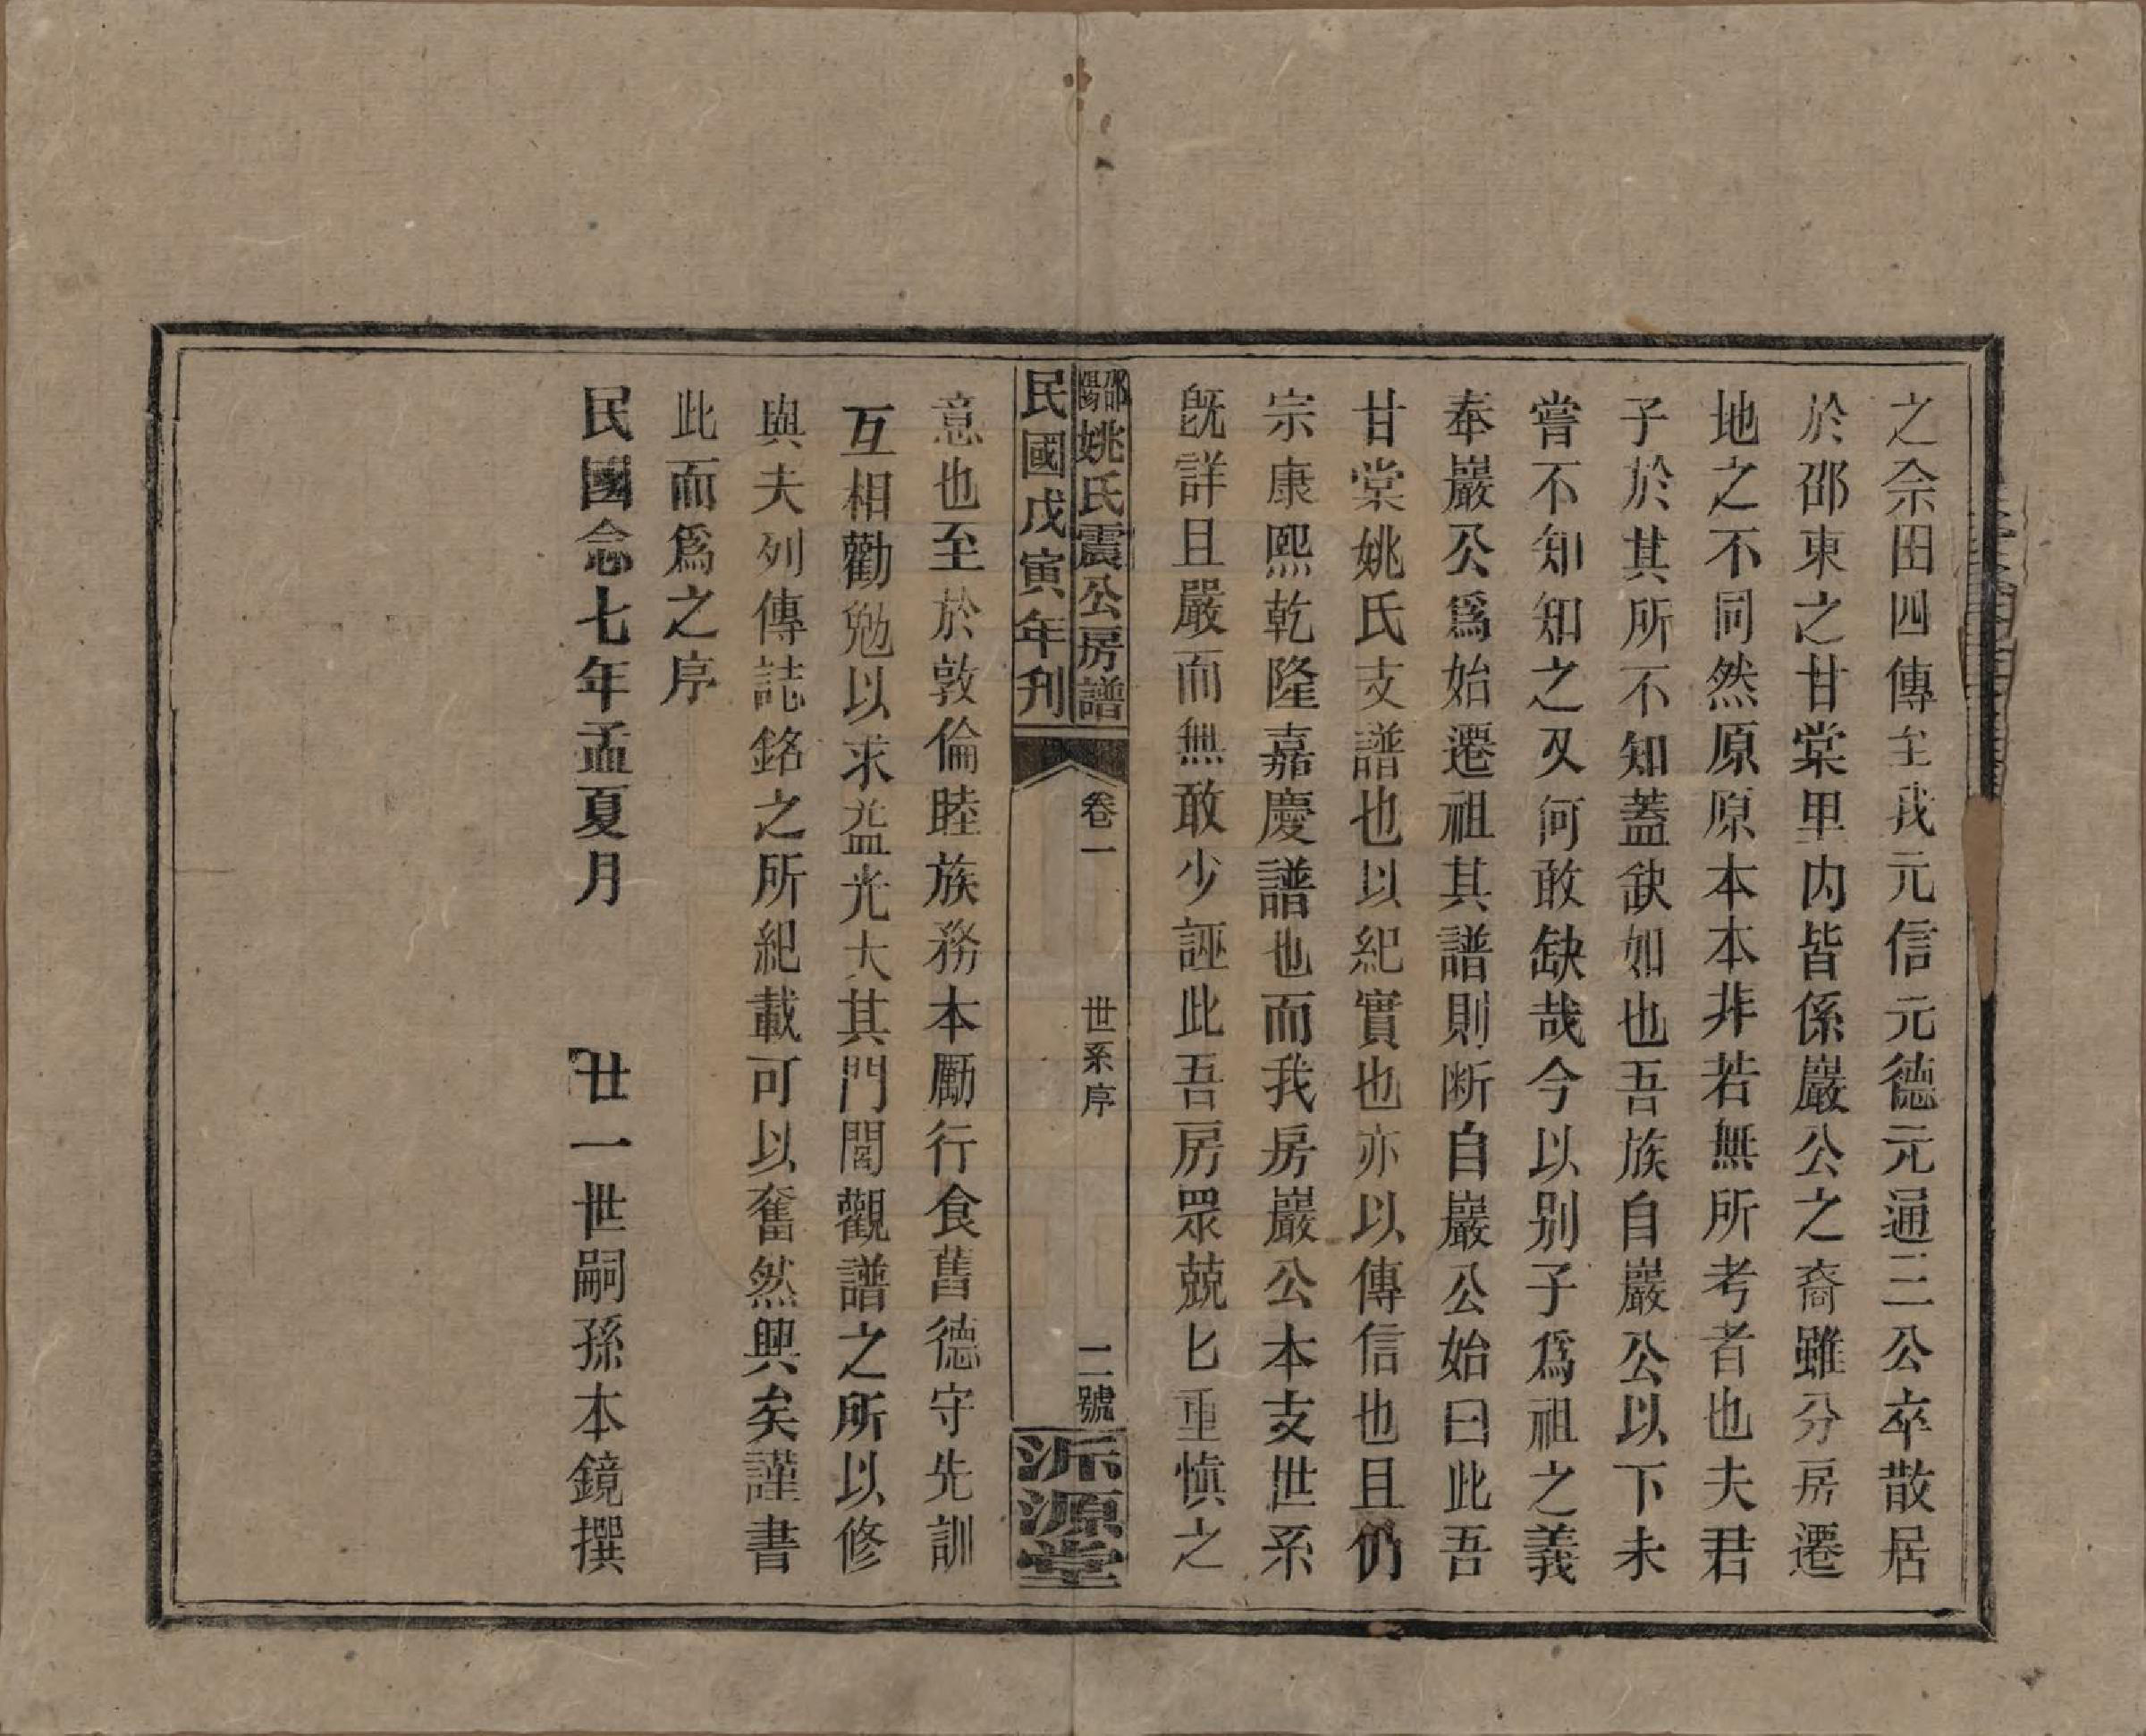 之佘田四傳至我元信元德元通三公卒散居
於邵東之甘棠里内皆係巖公之裔雖分房遷
地之不同然原原本本非若無所考者也夫君
子於其所不知蓋缺如也吾族自巖公以下未
嘗不知知之又何敢缺哉今以别子爲祖之義
奉巖公爲始遷祖其譜則断自巖公始曰此吾
甘棠姚氏支譜也以紀實也亦以傳信也且仍
宗康熙乾隆嘉慶譜也而我房巖公本支世系
旣詳且嚴而無敢少誣此吾房眾兢匕重慎之
邵陽姚氏震公房譜
民國戊寅年刋
卷一
世系序
二號
沠源堂
意也至於敦倫睦族務本勵行食舊德守先訓
互相勸勉以求益光大其門閭觀譜之所以修
與夫列傳誌銘之所紀載可以奮然興矣謹書
此而爲之序
民國念七年孟夏月　廿一世嗣孫本鏡撰